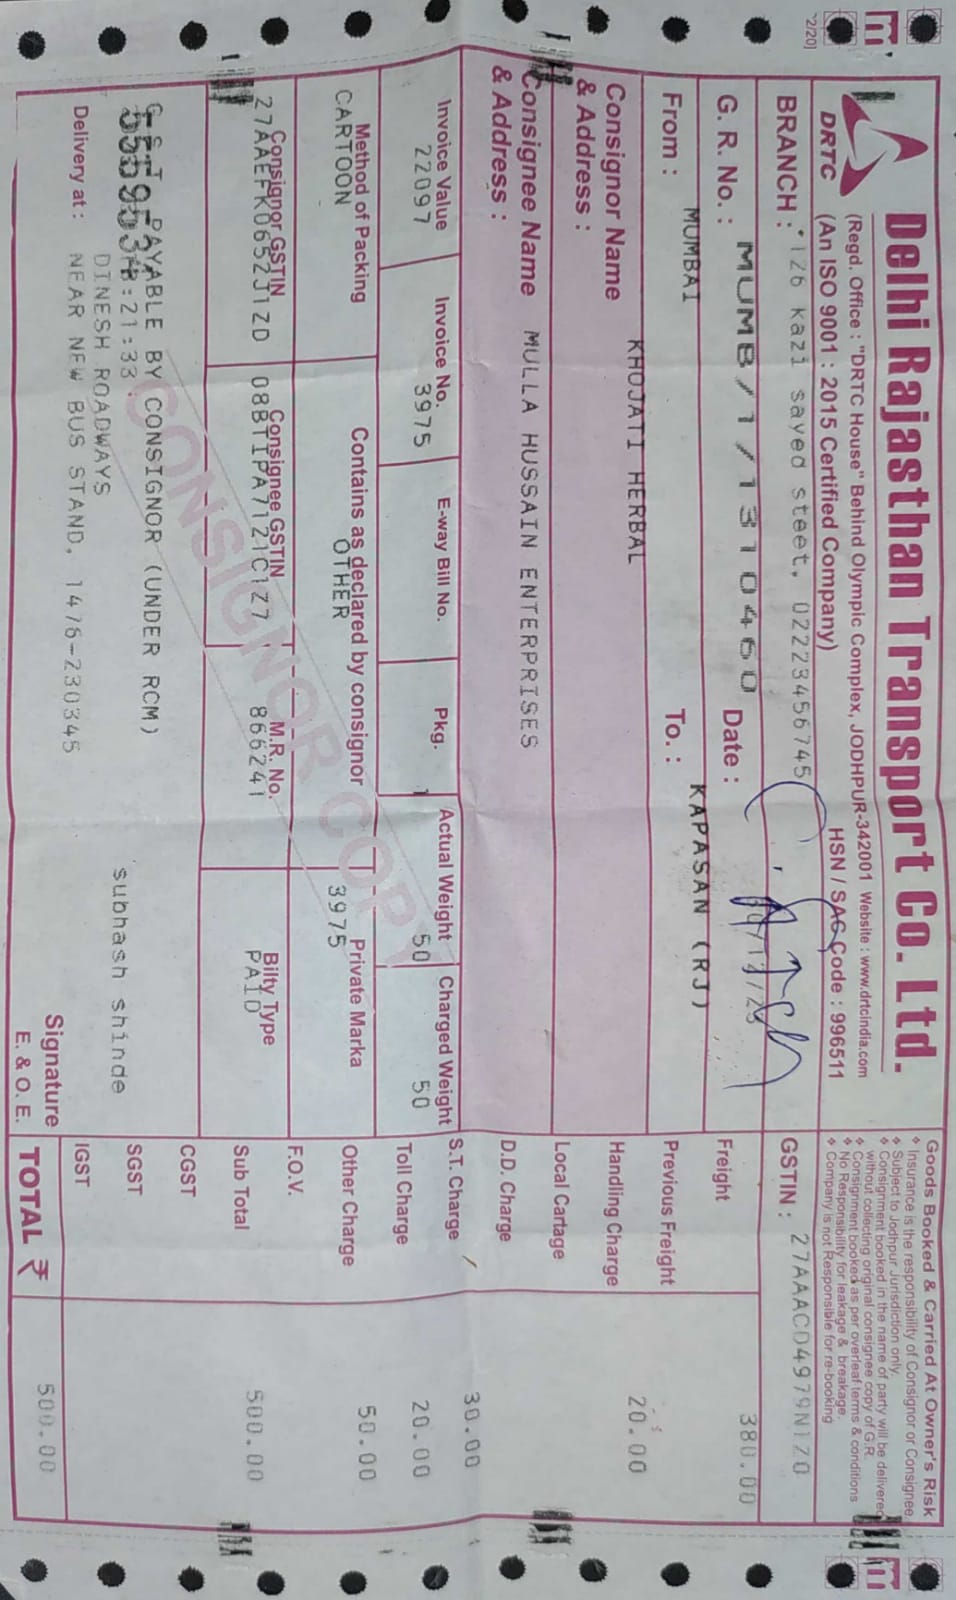 Delhi Rajasthan Transport Co. Ltd.
DRTC
(Regd. Office : "DRTC House" Behind Olympic Complex, JODHPUR-342001 Website : www.drtcindia.com
(An ISO 9001 : 2015 Certified Company)
HSN / SAC Code : 996511
Goods Booked & Carried At Owner's Risk
Insurance is the responsibility of Consignor or Consignee
Subject to Jodhpur Jurisdiction only.
Consignment booked in the name of party will be delivered
without collecting original consignee copy of G.R.
Consignment booked as per overleaf terms & conditions
No Responsibility for leakage & breakage.
Company is not Responsible for re-booking
BRANCH : 126 kazi sayed steet. 02223456745
GSTIN : 27AAACD4979N1ZO
G. R. No. : MUMB/1/1310460 Date :
From : MUMBAI To. : KAPASAN (RJ)
Consignor Name
& Address :
KHOJATI HERBAL
Consignee Name
& Address :
MULLA HUSSAIN ENTERPRISES
Invoice Value Invoice No. E-way Bill No. Pkg. Actual Weight Charged Weight
22097 3975 1 50 50
Method of Packing Contains as declared by consignor Private Marka
CARTOON OTHER 3975
Consignor GSTIN Consignee GSTIN M.R. No. Bilty Type
27AAEFK0652J1ZD 08BTIPA7121C1Z7 866241 PAID
CONSIGNOR COPY
G S T PAYABLE BY CONSIGNOR (UNDER RCM)
:21:33
subhash shinde
DINESH ROADWAYS
Delivery at : NEAR NEW BUS STAND, 1476-230345
Signature
E. & O. E.
Freight 380.00
Previous Freight
Handling Charge 20.00
Local Cartage
D.D. Charge
S.T. Charge 30.00
Toll Charge 20.00
Other Charge 50.00
F.O.V.
Sub Total 500.00
CGST
SGST
IGST
TOTAL ₹ 500.00